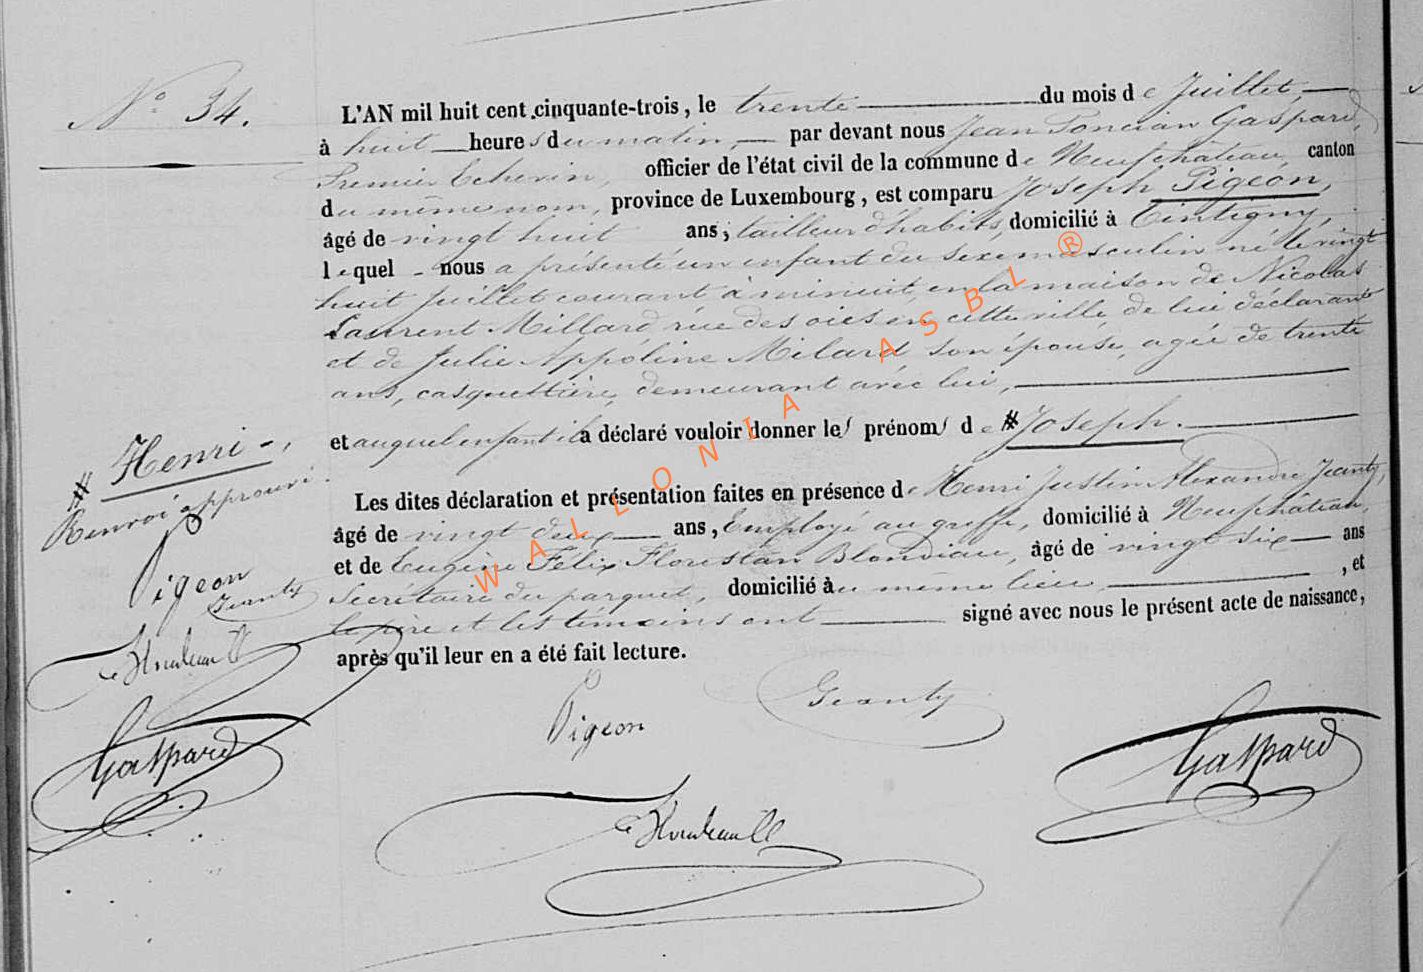 N° 34.
L'AN mil huit cent cinquante-trois, le trente du mois de Juillet,
à huit heures du matin, par devant nous Jean Poncian Gaspard,
Premier Echevin, officier de l'état civil de la commune de Neufchâteau, canton
du même nom, province de Luxembourg, est comparu Joseph Pigeon,
âgé de vingt huit ans, tailleur d'habits, domicilié à Tintigny,
lequel nous a présenté un enfant du sexe masculin né le vingt
huit Juillet courant à minuit, en la maison de Nicolas
Laurent Millard rue des oies en cette ville de lui déclarant
et de Julie Appoline Milard son épouse, agée de trente
ans, casquettière, demeurant avec lui,
et auquel enfant il a déclaré vouloir donner les prénoms de # Joseph.
# Henri -,
Renvoi approuvé.
Les dites déclaration et présentation faites en présence de Henri Justin Alexandre Jeanty,
âgé de vingt deux ans, Employé au greffe, domicilié à Neufchâteau,
et de Eugène Félix Florestan Blondiau, âgé de vingt six ans
Secrétaire du parquet, domicilié au même lieu, , et
le père et les témoins ont signé avec nous le présent acte de naissance,
après qu'il leur en a été fait lecture.
Pigeon
Jeanty
Gaspard
Pigeon
Geanty
Gaspard
WALLONIA ASBL ®